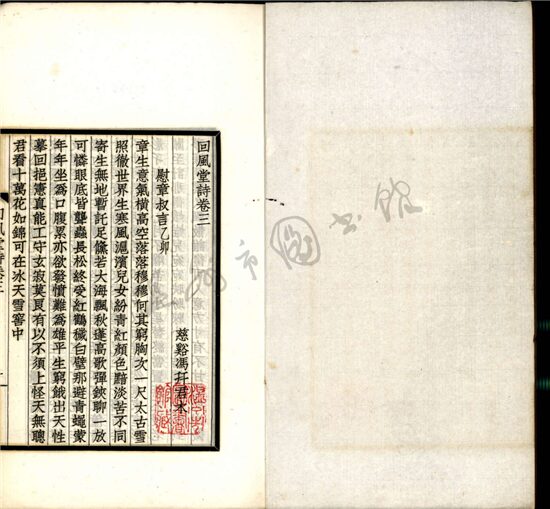 回風堂詩卷三
慈谿馮幵君木
慰章叔言乙卯
章生意氣橫高空落落穆穆何其窮胸次一尺太古雪
照徹世界生寒風滬濱兒女紛青紅顏色黯淡苦不同
寄生無地暫託足儵若大海飄秋蓬高歌彈鋏聊一放
可憐眼底皆聾蟲長松終受紅鶴穢白璧那避青蠅蒙
年年坐為口腹累亦欲發憤難為雄平生窮餓出天性
摹回挹憲真能工守玄寂莫良有以不須上怪天無聰
君看十萬花如錦可在冰天雪窖中
回風堂詩卷三
一